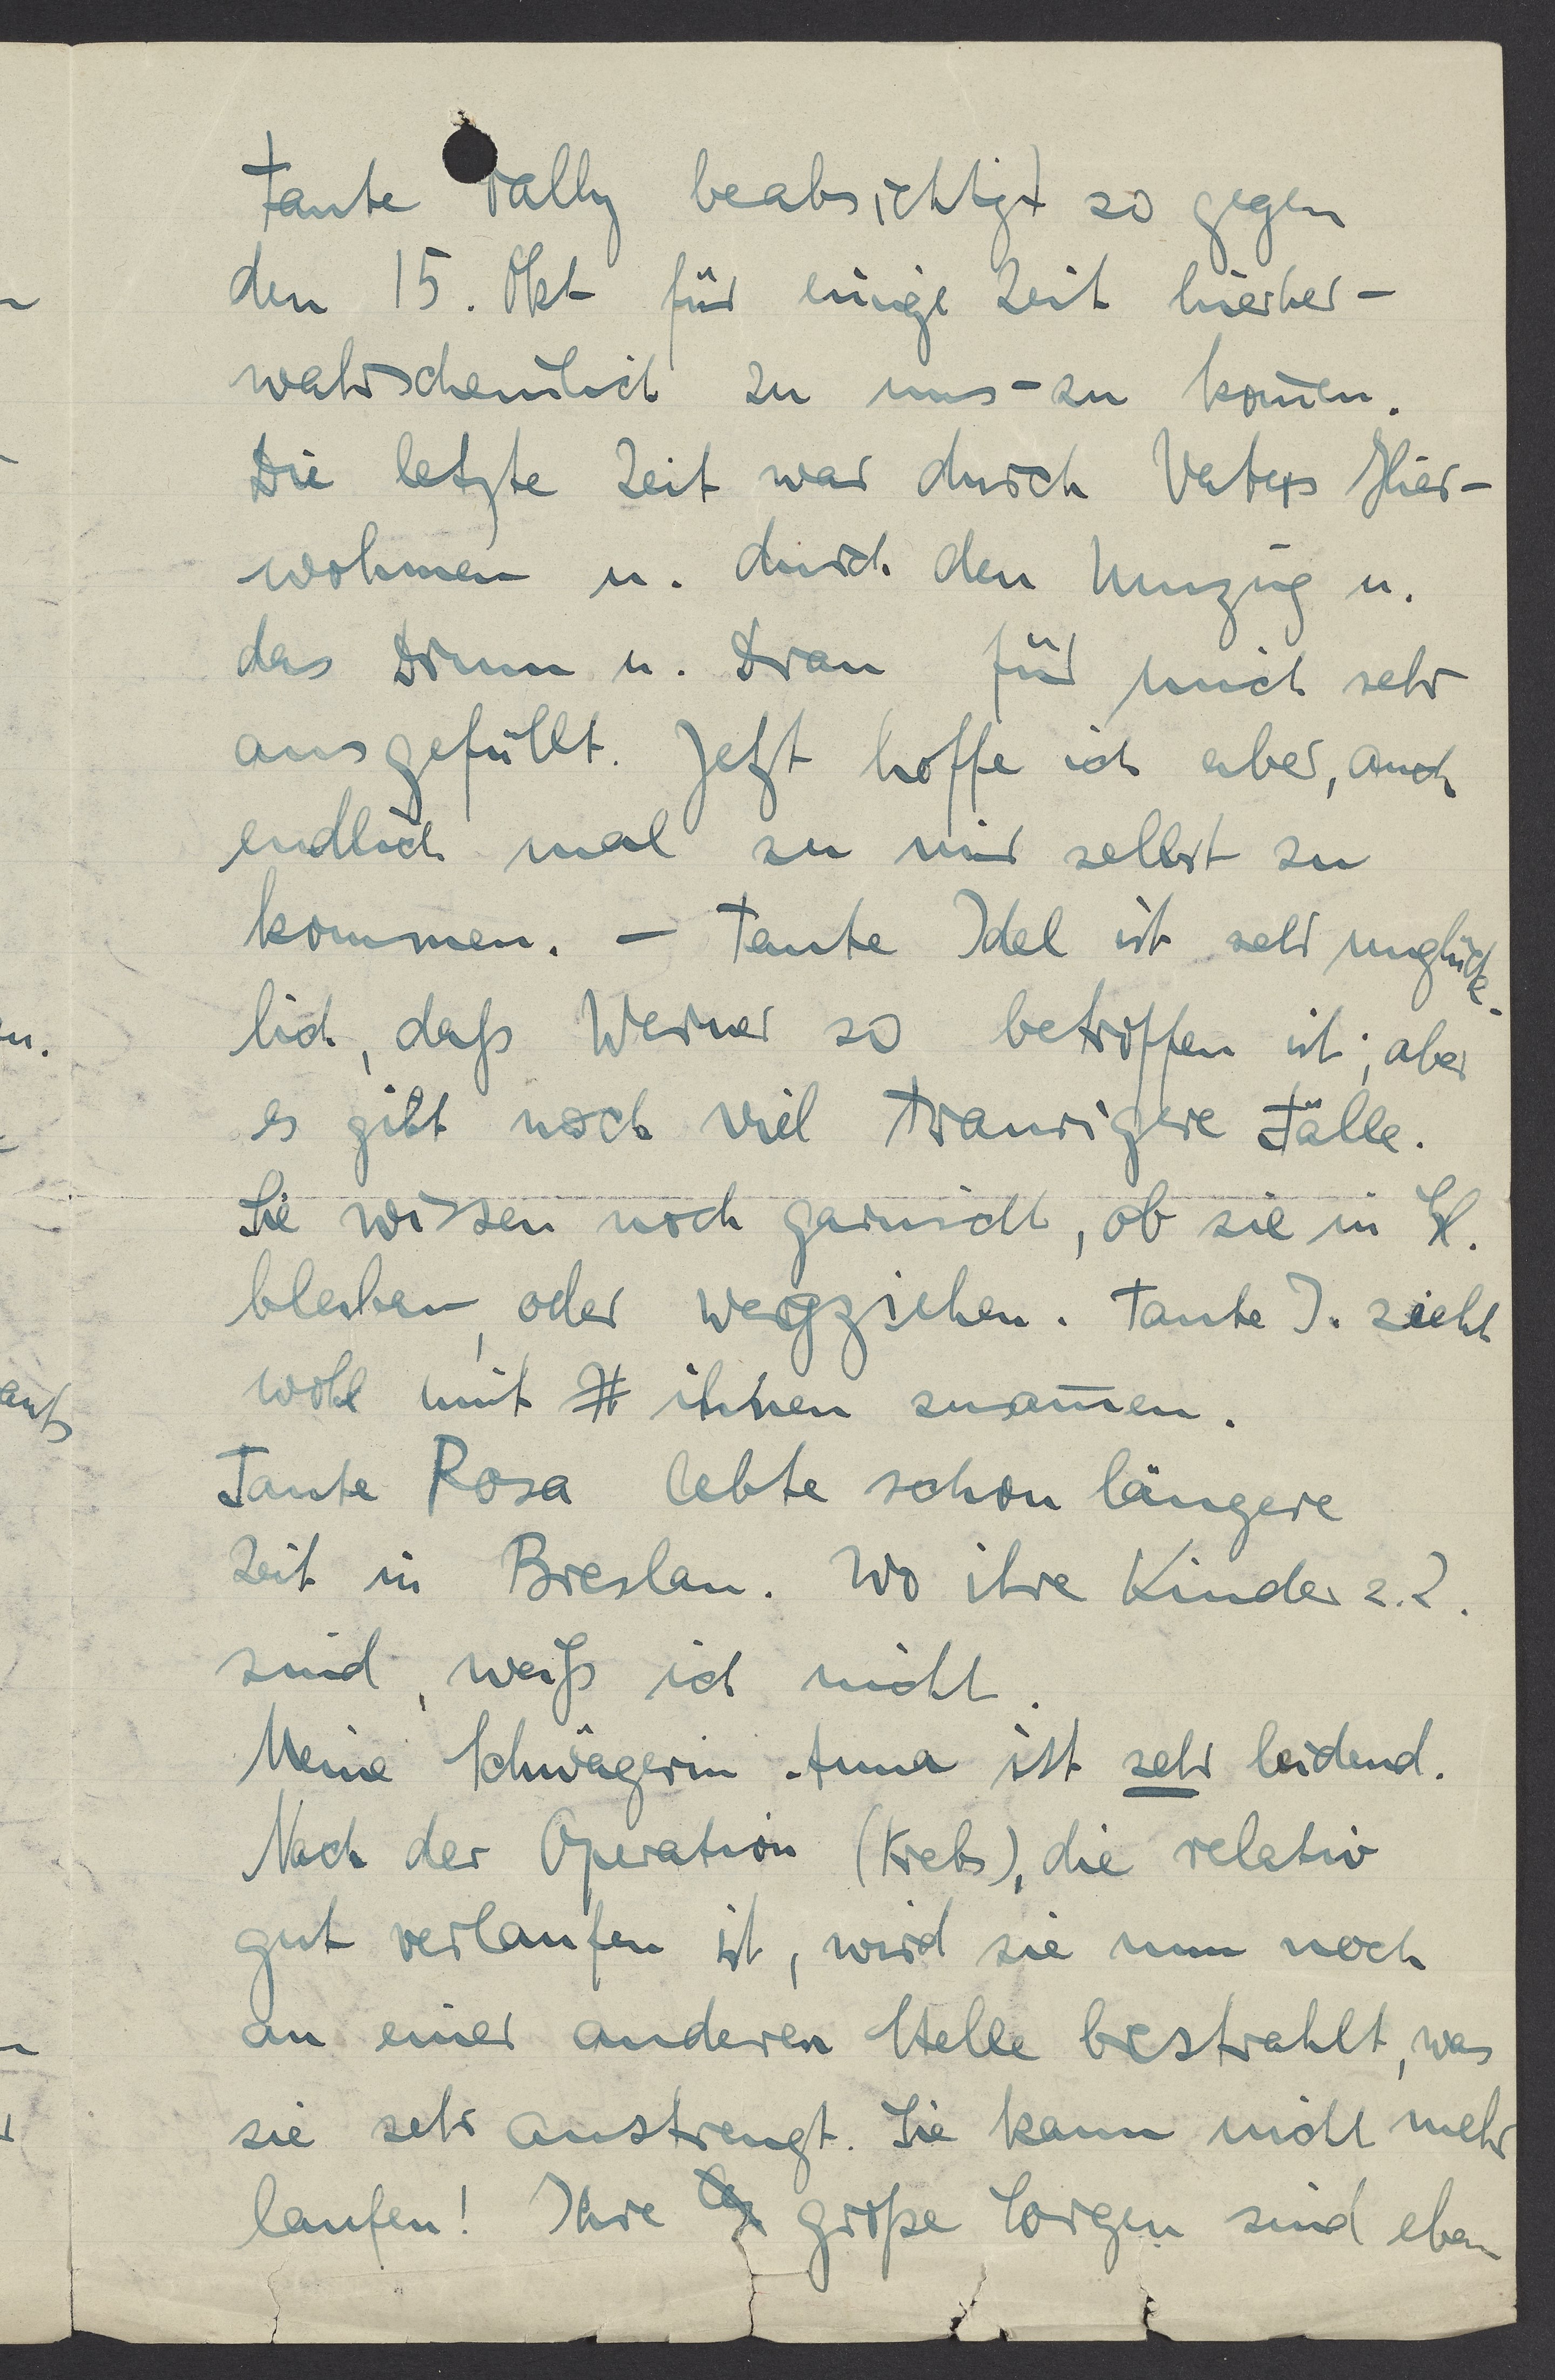 Tante Vally beabsichtigt so gegen
den 15. Okt für einige Zeit hierher-
wahrscheinlich zu uns-zu kom̄en.
Die letzte Zeit war durch Vaters Hier-
wohnen u. durch den Umzug u.
das Drum u. Dran für mich sehr
ausgefüllt. Jetzt hoffe ich aber, auch
endlich mal zu mir selbst zu
kommen. - Tante Idel ist sehr unglück-
lich, daß Werner so betroffen ist; aber
es gibt noch viel traurigere Fälle.
Sie wissen noch garnicht, ob sie in H.
bleiben, oder wegziehen. Tante I. zieht
wohl mit ihnen zusam̄en.
Tante Rosa lebte schon längere
Zeit in Breslau. Wo ihre Kinder z.Z.
sind, weiß ich nicht.
Meine Schwägerin Anna ist sehr leidend.
Nach der Operation (Krebs), die relativ
gut verlaufen ist, wird sie nun noch
an einer anderen Stelle bestrahlt, was
sie sehr anstrengt. Sie kann nicht mehr
laufen! Ihre große Sorgen sind eben